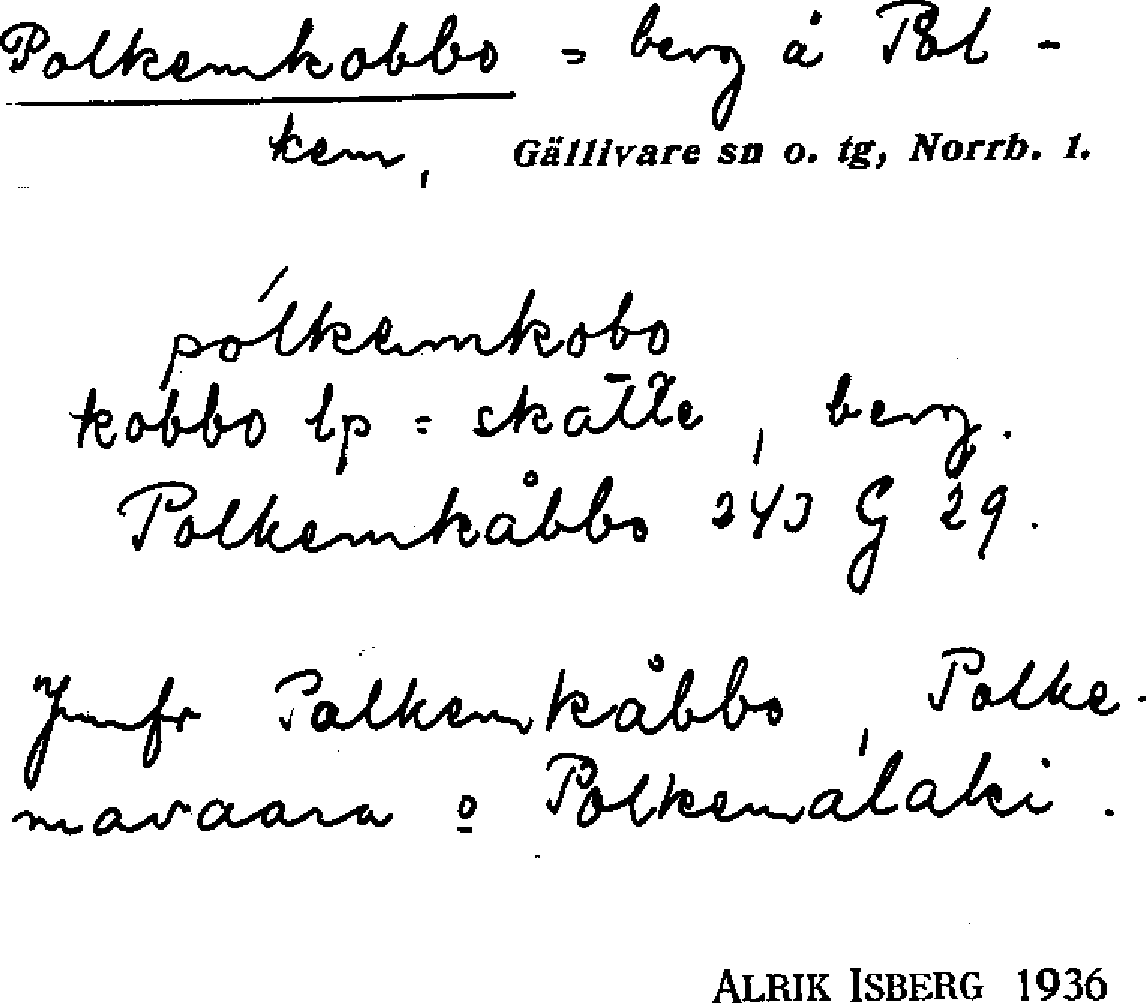 Polkemkobbo = berg å Pol-
kem, Gällivare sn o. tg, Norrb. 1.
pólkemkobo
kobbo lp = skalle, berg.
Polkemkåbbo 243 G 29.
Jmfr Palkemkåbbo, Polke-
mavaara o Polkemalaki.
ALRIK ISBERG 1936